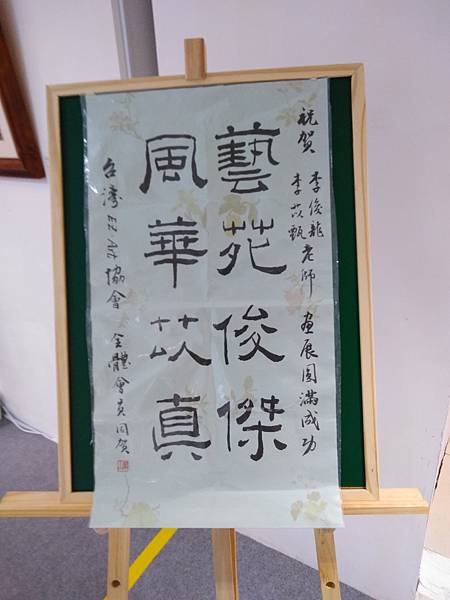 祝賀 李俊龍 李苡甄 老師 画展圓滿成功
藝苑俊傑
風華苡真
台灣EZ Art協會 全體會員同賀